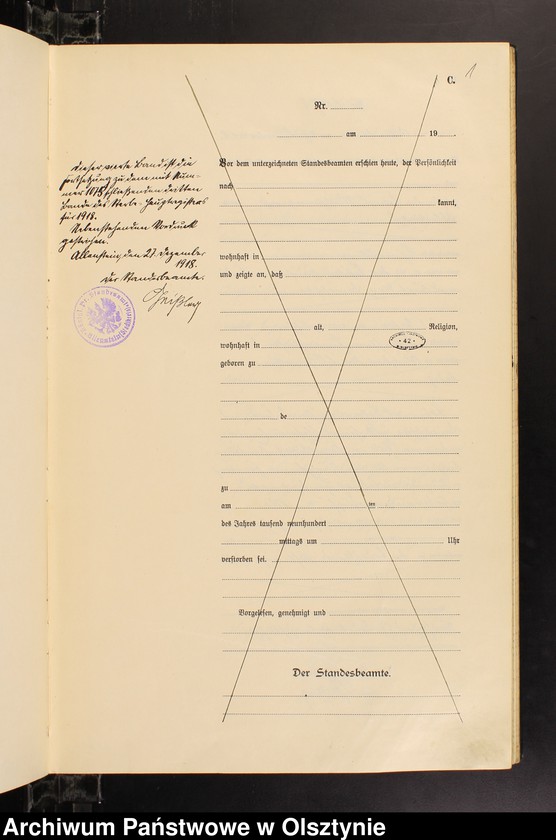 C. 1
Nr.
am 19
Vor dem unterzeichneten Standesbeamten erschien heute, der Persönlichkeit
nach
kannt,
wohnhaft in
und zeigte an, daß
alt, Religion,
wohnhaft in
42
geboren zu
de
zu
am ten
des Jahres tausend neunhundert
mittags um Uhr
verstorben sei.
Vorgelesen, genehmigt und
Der Standesbeamte.
Dieser vierte Band ist die
Fortsetzung zu dem mit Num-
mer 1078 schließenden dritten
Bande des Sterbe-Hauptregisters
für 1918.
Nebenstehenden Vordruck
gestrichen.
Allenstein, den 27. Dezember
1918.
Der Standesbeamte.
Archiwum Państwowe w Olsztynie